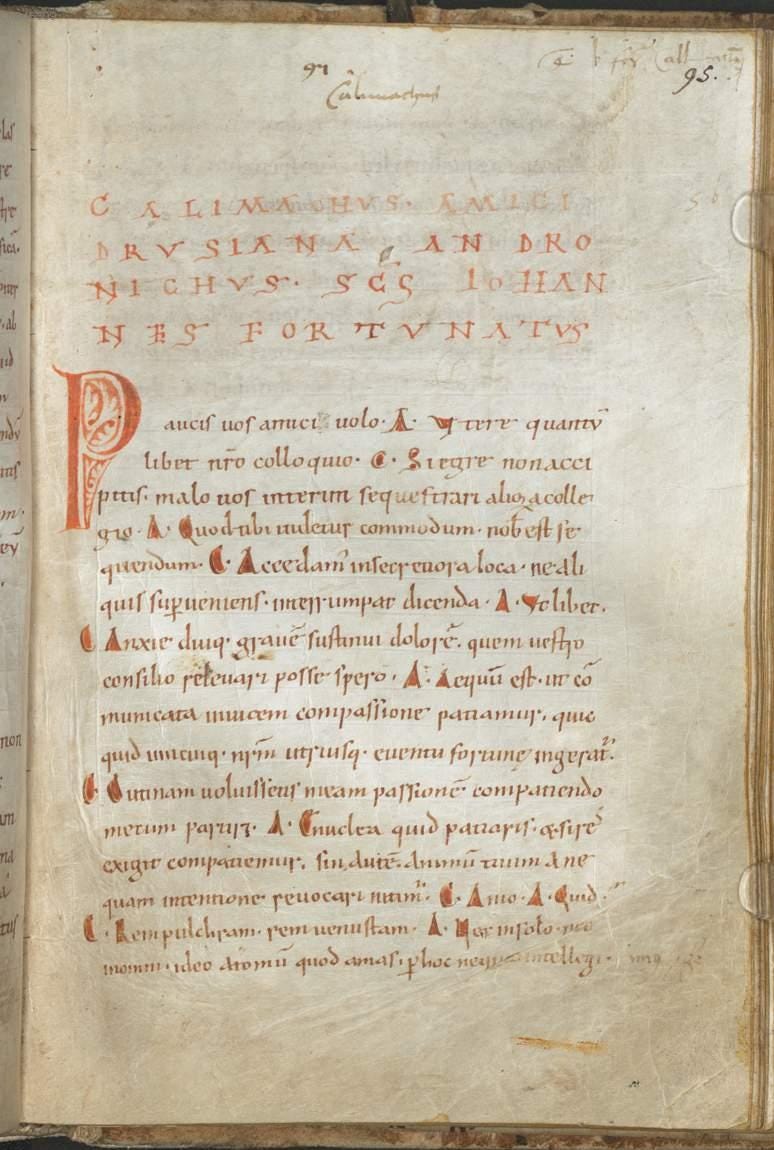 91
Calimachus
95.
CALIMACHVS. AMICI
DRVSIANA ANDRO
NICHVS. SCS IOHAN
NES FORTVNATVS
Paucis uos amici uolo. A. Vtere quantū
libet nr̄o colloquio. C. Si egre non acci
pitis. malo uos interim sequestrari alioꝝ colle
gio. A. Quod tibi uidetur commodum. nob̄ est se
quendum. C. Accedam' in secretiora loca. ne ali
quis sup̄ueniens. interrumpat dicenda. A. Vt libet.
C Anxie diuq. grauē sustinui dolorē. quem uestro
consilio releuari posse spero. A. Aequū est. ut cō
municata inuicem compassione patiamur. quic
quid unicuiq. nr̄m utriusq. euentu fortunę ingerat'.
C. O utinam uoluissetis meam passionē compatiendo
mecum partiri. A. Enuclea quid patiaris. & si res
exigit compatiemur. sin autē. animū tuum a ne
quam intentione reuocari nitim'. C. Amo. A. Quid.
C. Rem pulchram. rem uenustam. A. Nec in solo. nec
in omni. ideo atomū quod amas. p̄ hoc nequit intellegi.